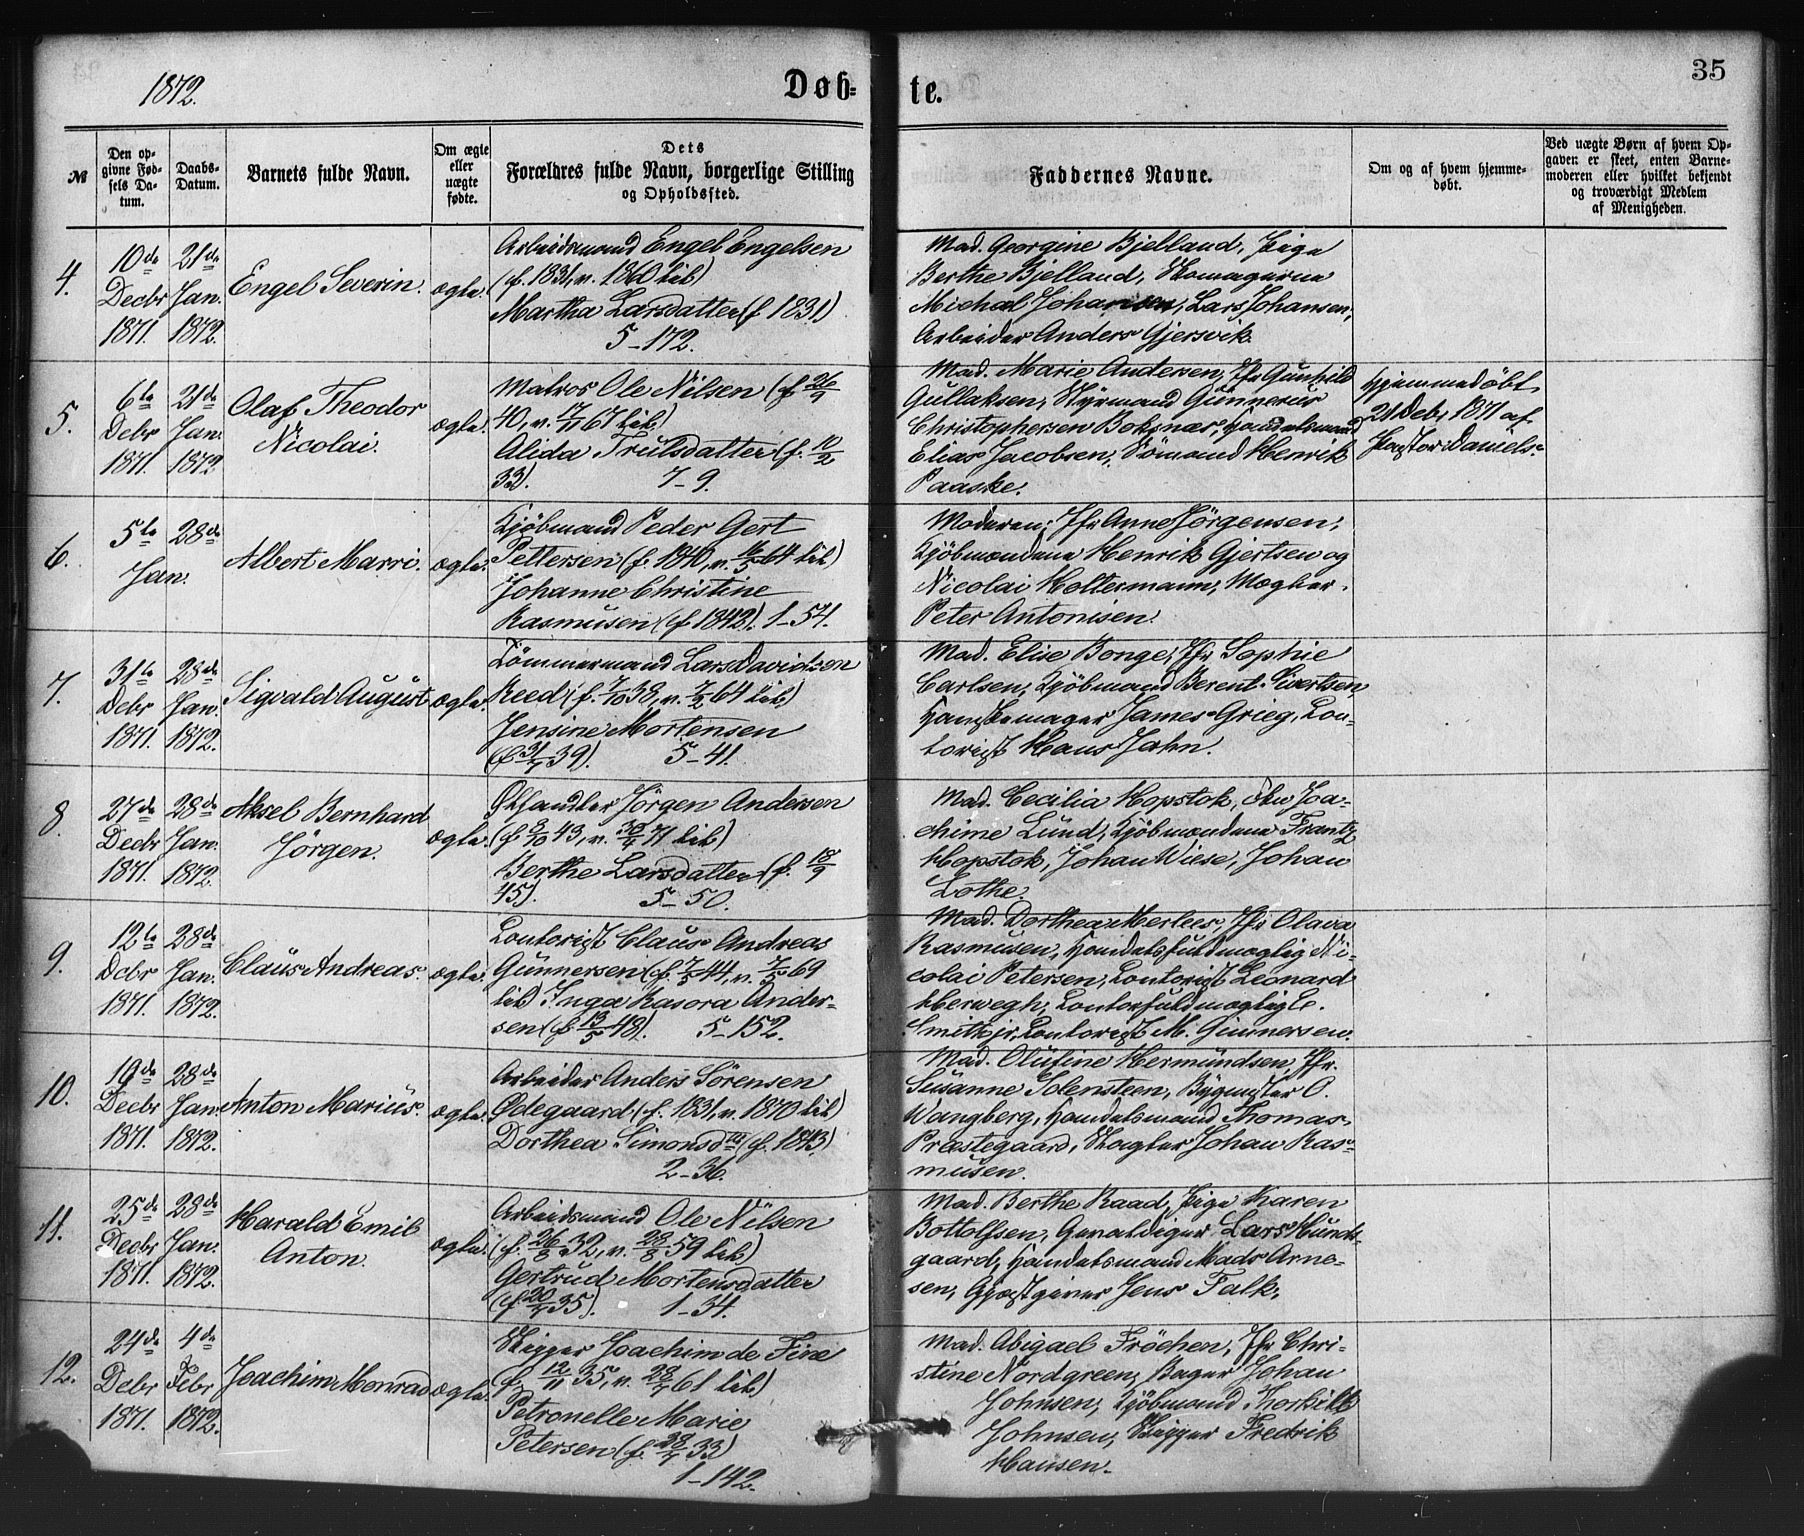 1872.
Døb-
te.
35
№
Den op-
givne Fød-
sels Da-
tum.
Daabs-
Datum.
Barnets fulde Navn.
Om ægte
eller
uægte
fødte.
Dets
Forældres fulde Navn, borgerlige Stilling
og Opholdssted.
Faddernes Navne.
Om og af hvem hjemme-
døbt.
Ved uægte Børn af hvem Op-
gaven er skeet, enten Barne-
moderen eller hvilket bekjendt
og troværdigt Medlem
af Menigheden.
4.
10de
Decbr
1871.
21de
Jan.
1872.
Engel Severin.
ægte.
Arbeidsmand Engel Engelsen
(f. 1831, v. 1860 til)
Martha Larsdatter (f 1831)
5-172.
Mad. Georgine Bjelland, Pige
Berthe Bjelland, Skomagerne
Michal Johansen, Lars Johansen,
Arbeider Anders Gjersvik.
5.
6te
Debr
1871.
21de
Jan.
1872.
Olaf Theodor
Nicolai.
ægte.
Matros Ole Nilsen (f. 26/9
40, v. 67 til)
Alida Trulsdatter (f. 12/2
33). 7-9.
Mad. Marie Andersen, Jfr Gunhild
Gullaksen, Styrmand Gunnerius
Christophersen Boksnæs, Handelsmand
Elias Jacobsen, Sømand Henrik
Paaske.
Hjemmedøbt
21 Deb. 1871 af
Pastor Daniels:
6.
5te
Jan.
28de
Albert Marri.
ægte.
Kjöbmand Peder Gert
Pettersen (f. 1840, v. 16/5 64 til)
Johanne Christine
Rasmusen (f 1842). 1-54.
Moderen, Jfr Anne Jörgensen,
Kjöbmændene Henrik Gjertsen og
Nicolai Holtermann, Mægler
Peter Antonisen.
7.
31te
Debr
1871.
28de
Jan.
1872.
Sigvald August
ægte.
Tömmermand Lars Davidsen
Reed (f. 7/10 38, v. 7/2 64 til)
Jensine Mortensen
(f 31/7 39). 5-41.
Mad. Elise Bonge, Jfr Sophie
Carlsen, Kjöbmand Berent Sivertsen
Handskemager James Grieg, Con-
torist Hans Jahn.
8.
27de
Decbr
1871.
28de
Jan.
1872.
Aksel Bernhard
Jörgen.
ægte.
Ölhandler Jörgen Andersen
(f 8/10 43, v. 71 til)
Berthe Larsdatter (f. 18/9
45). 5-50.
Mad. Cecilia Hopstok, Fru Joa-
chime Lund, Kjöbmændene Frantz
Hopstok, Johan Wiese, Johan
Lothe.
9.
12te
Debr
1871.
28de
Jan.
1872.
Claus Andreas.
ægte.
Contorist Claus Andreas
Gunnersen (f. 7/5 44, v. 7/5 69
til) Inga Rasora Ander-
sen (f 13/5 48). 5-152.
Mad. Dorthea Merlees, Jfr Olava
Rasmusen, Handelsfuldmægtig Ni-
colai Petersen, Contorist Leonard
Herwegh, Contorfuldmægtig C.
Smitt jr, Contorist M. Gunnersen.
10.
19de
Decbr
1871.
28de
Jan.
1872.
Anton Marius.
ægte.
Arbeider Anders Sörensen
Ödegaard (f. 1831, v. 1870 til)
Dorthea Simonsdtr (f. 1843)
2-36.
Mad. Olufine Hermundsen, Jfr.
Susanne Solensteen, Bygmester O.
Wangberg, Handelsmand Thomas
Præstegaard, Slagter Johan Ras-
musen.
11.
25de
Decbr
1871.
28de
Jan.
1872.
Harald Emil
Anton.
ægte.
Arbeidsmand Ole Nilsen
(f. 26/8 32, v. 28/8 59 til)
Gertrud Mortensdatter
(f. 20/7 35). 1-34.
Mad. Berthe Raad, Pige Karen
Bottolfsen, Gevaldiger Lars Hunds-
gaard, Handelsmand Mads Arne-
sen, Gjæstgiver Jens Falk.
12.
24de
Debr
1871.
4de
Febr
1872.
Joachim Monrad
ægte.
Skipper Joachim de Fine
f. 12/11 35, v. 61 til)
Petronelle Marie
Petersen (f. 33)
1-142.
Mad. Abigael Fröchen, Jfr Chri-
stine Nordgreen, Bager Johan
Johnsen, Kjöbmand Thorkild
Johnsen, Skipper Fredrik
Hansen.